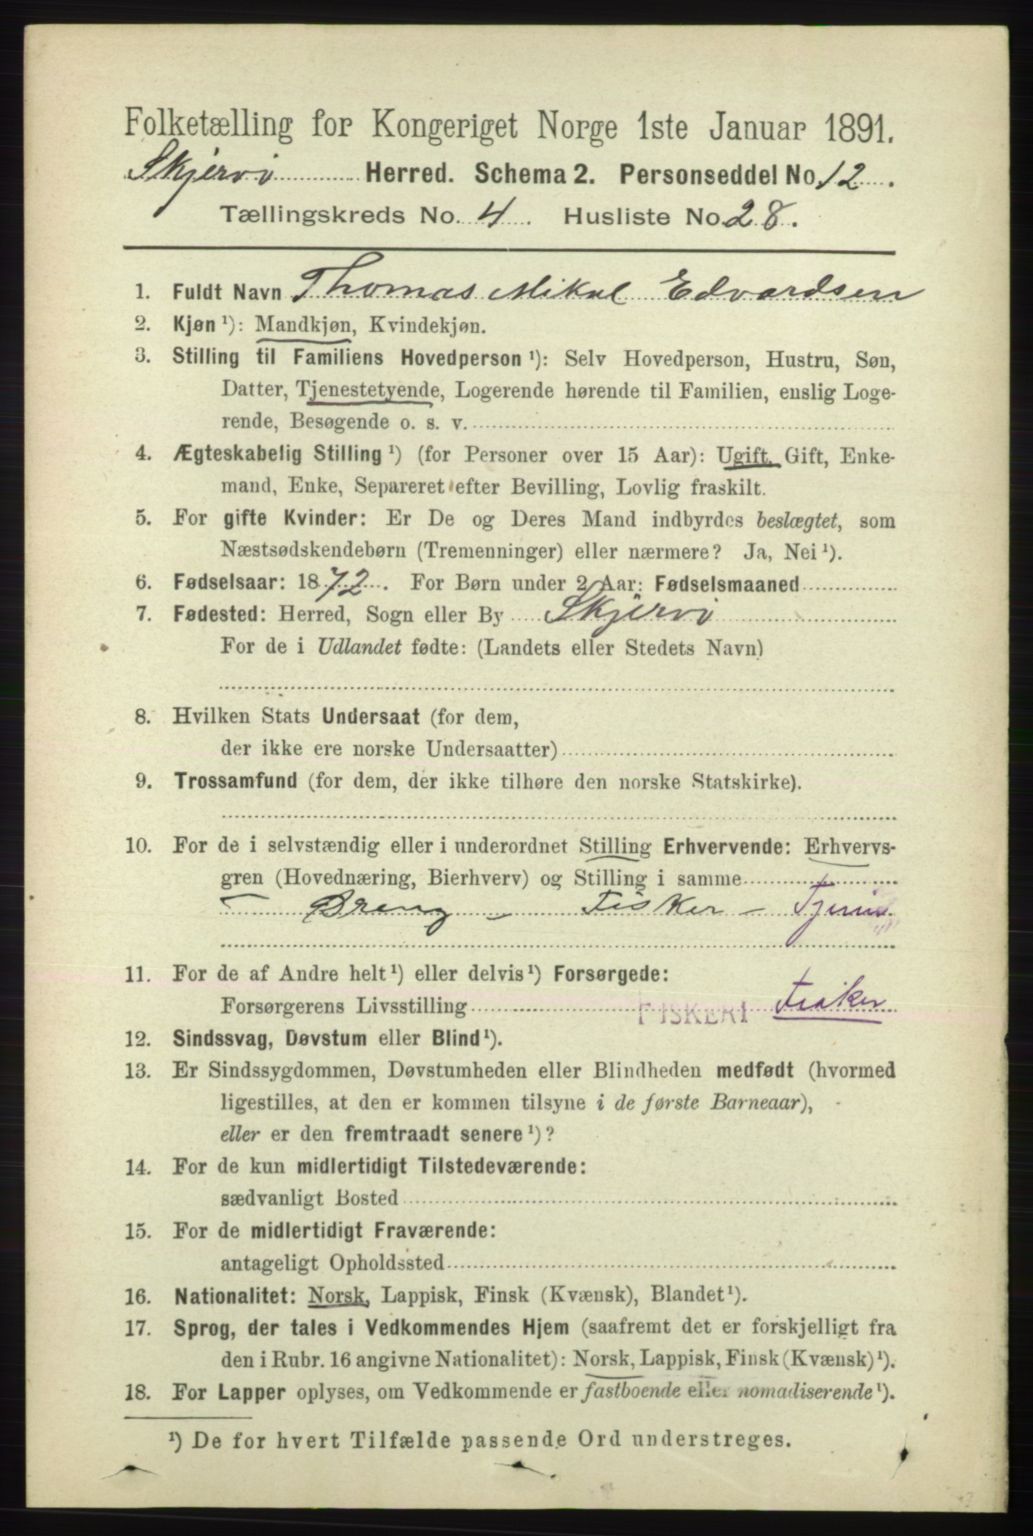 Folketælling for Kongeriget Norge 1ste Januar 1891.
Skjervø Herred. Schema 2. Personseddel No. 12.
Tællingskreds No. 4. Husliste No. 28.
1. Fuldt Navn Thomas Mikal Edvardsen
2. Kjøn ¹): Mandkjøn, Kvindekjøn.
3. Stilling til Familiens Hovedperson ¹): Selv Hovedperson, Hustru, Søn,
Datter, Tjenestetyende, Logerende hørende til Familien, enslig Loge-
rende, Besøgende o. s. v.
4. Ægteskabelig Stilling ¹) (for Personer over 15 Aar): Ugift, Gift, Enke-
mand, Enke, Separeret efter Bevilling, Lovlig fraskilt.
5. For gifte Kvinder: Er De og Deres Mand indbyrdes beslægtet, som
Næstsødskendebørn (Tremenninger) eller nærmere? Ja, Nei ¹).
6. Fødselsaar: 1872. For Børn under 2 Aar: Fødselsmaaned
7. Fødested: Herred, Sogn eller By Skjervø
For de i Udlandet fødte: (Landets eller Stedets Navn)
8. Hvilken Stats Undersaat (for dem,
der ikke ere norske Undersaatter)
9. Trossamfund (for dem, der ikke tilhøre den norske Statskirke).
10. For de i selvstændig eller i underordnet Stilling Erhvervende: Erhvervs-
gren (Hovednæring, Bierhverv) og Stilling i samme
Dreng – Fisker –
11. For de af Andre helt ¹) eller delvis ¹) Forsørgede:
Forsørgerens Livsstilling FISKERI Fisker
12. Sindssvag, Døvstum eller Blind ¹).
13. Er Sindssygdommen, Døvstumheden eller Blindheden medfødt (hvormed
ligestilles, at den er kommen tilsyne i de første Barneaar),
eller er den fremtraadt senere ¹)?
14. For de kun midlertidigt Tilstedeværende:
sædvanligt Bosted
15. For de midlertidigt Fraværende:
antageligt Opholdssted
16. Nationalitet: Norsk, Lappisk, Finsk (Kvænsk), Blandet ¹).
17. Sprog, der tales i Vedkommendes Hjem (saafremt det er forskjelligt fra
den i Rubr. 16 angivne Nationalitet): Norsk, Lappisk, Finsk (Kvænsk) ¹).
18. For Lapper oplyses, om Vedkommende er fastboende eller nomadiserende ¹).
¹) De for hvert Tilfælde passende Ord understreges.